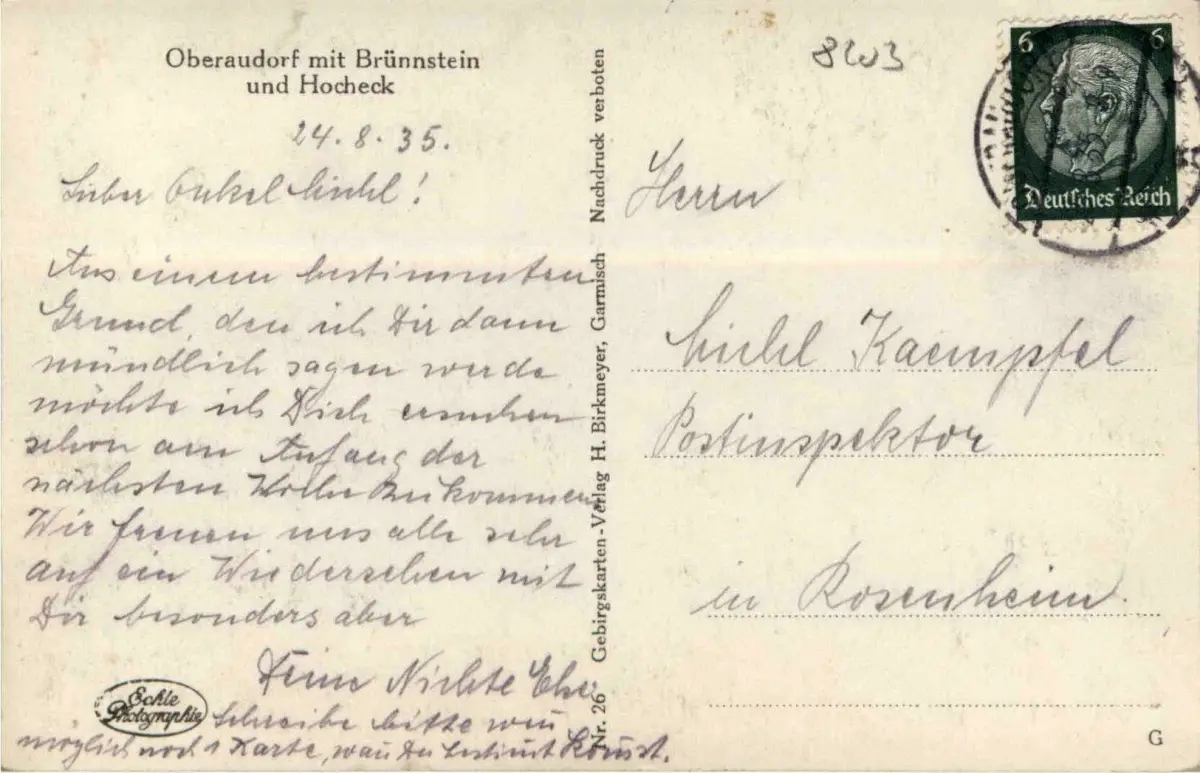 Oberaudorf mit Brünnstein
und Hocheck
24.8.35.
Lieber Onkel Michl!
Aus einem bestimmten
Grund, den ich Dir dann
mündlich sagen werde
möchte ich Dich ersuchen
schon am Anfang der
nächsten Woche zu kommen
Wir freuen uns alle sehr
auf ein Wiedersehen mit
Dir besonders aber
Deine Nichte Else
Schreibe bitte wen
möglich noch 1 Karte, wan Du bestimt komst.
Echte
Photographie
Nr. 26 Gebirgskarten-Verlag H. Birkmeyer, Garmisch Nachdruck verboten
8W3
6 6
Deutsches Reich
Herrn
Michl Kaempfel
Postinspektor
in Rosenheim.
G